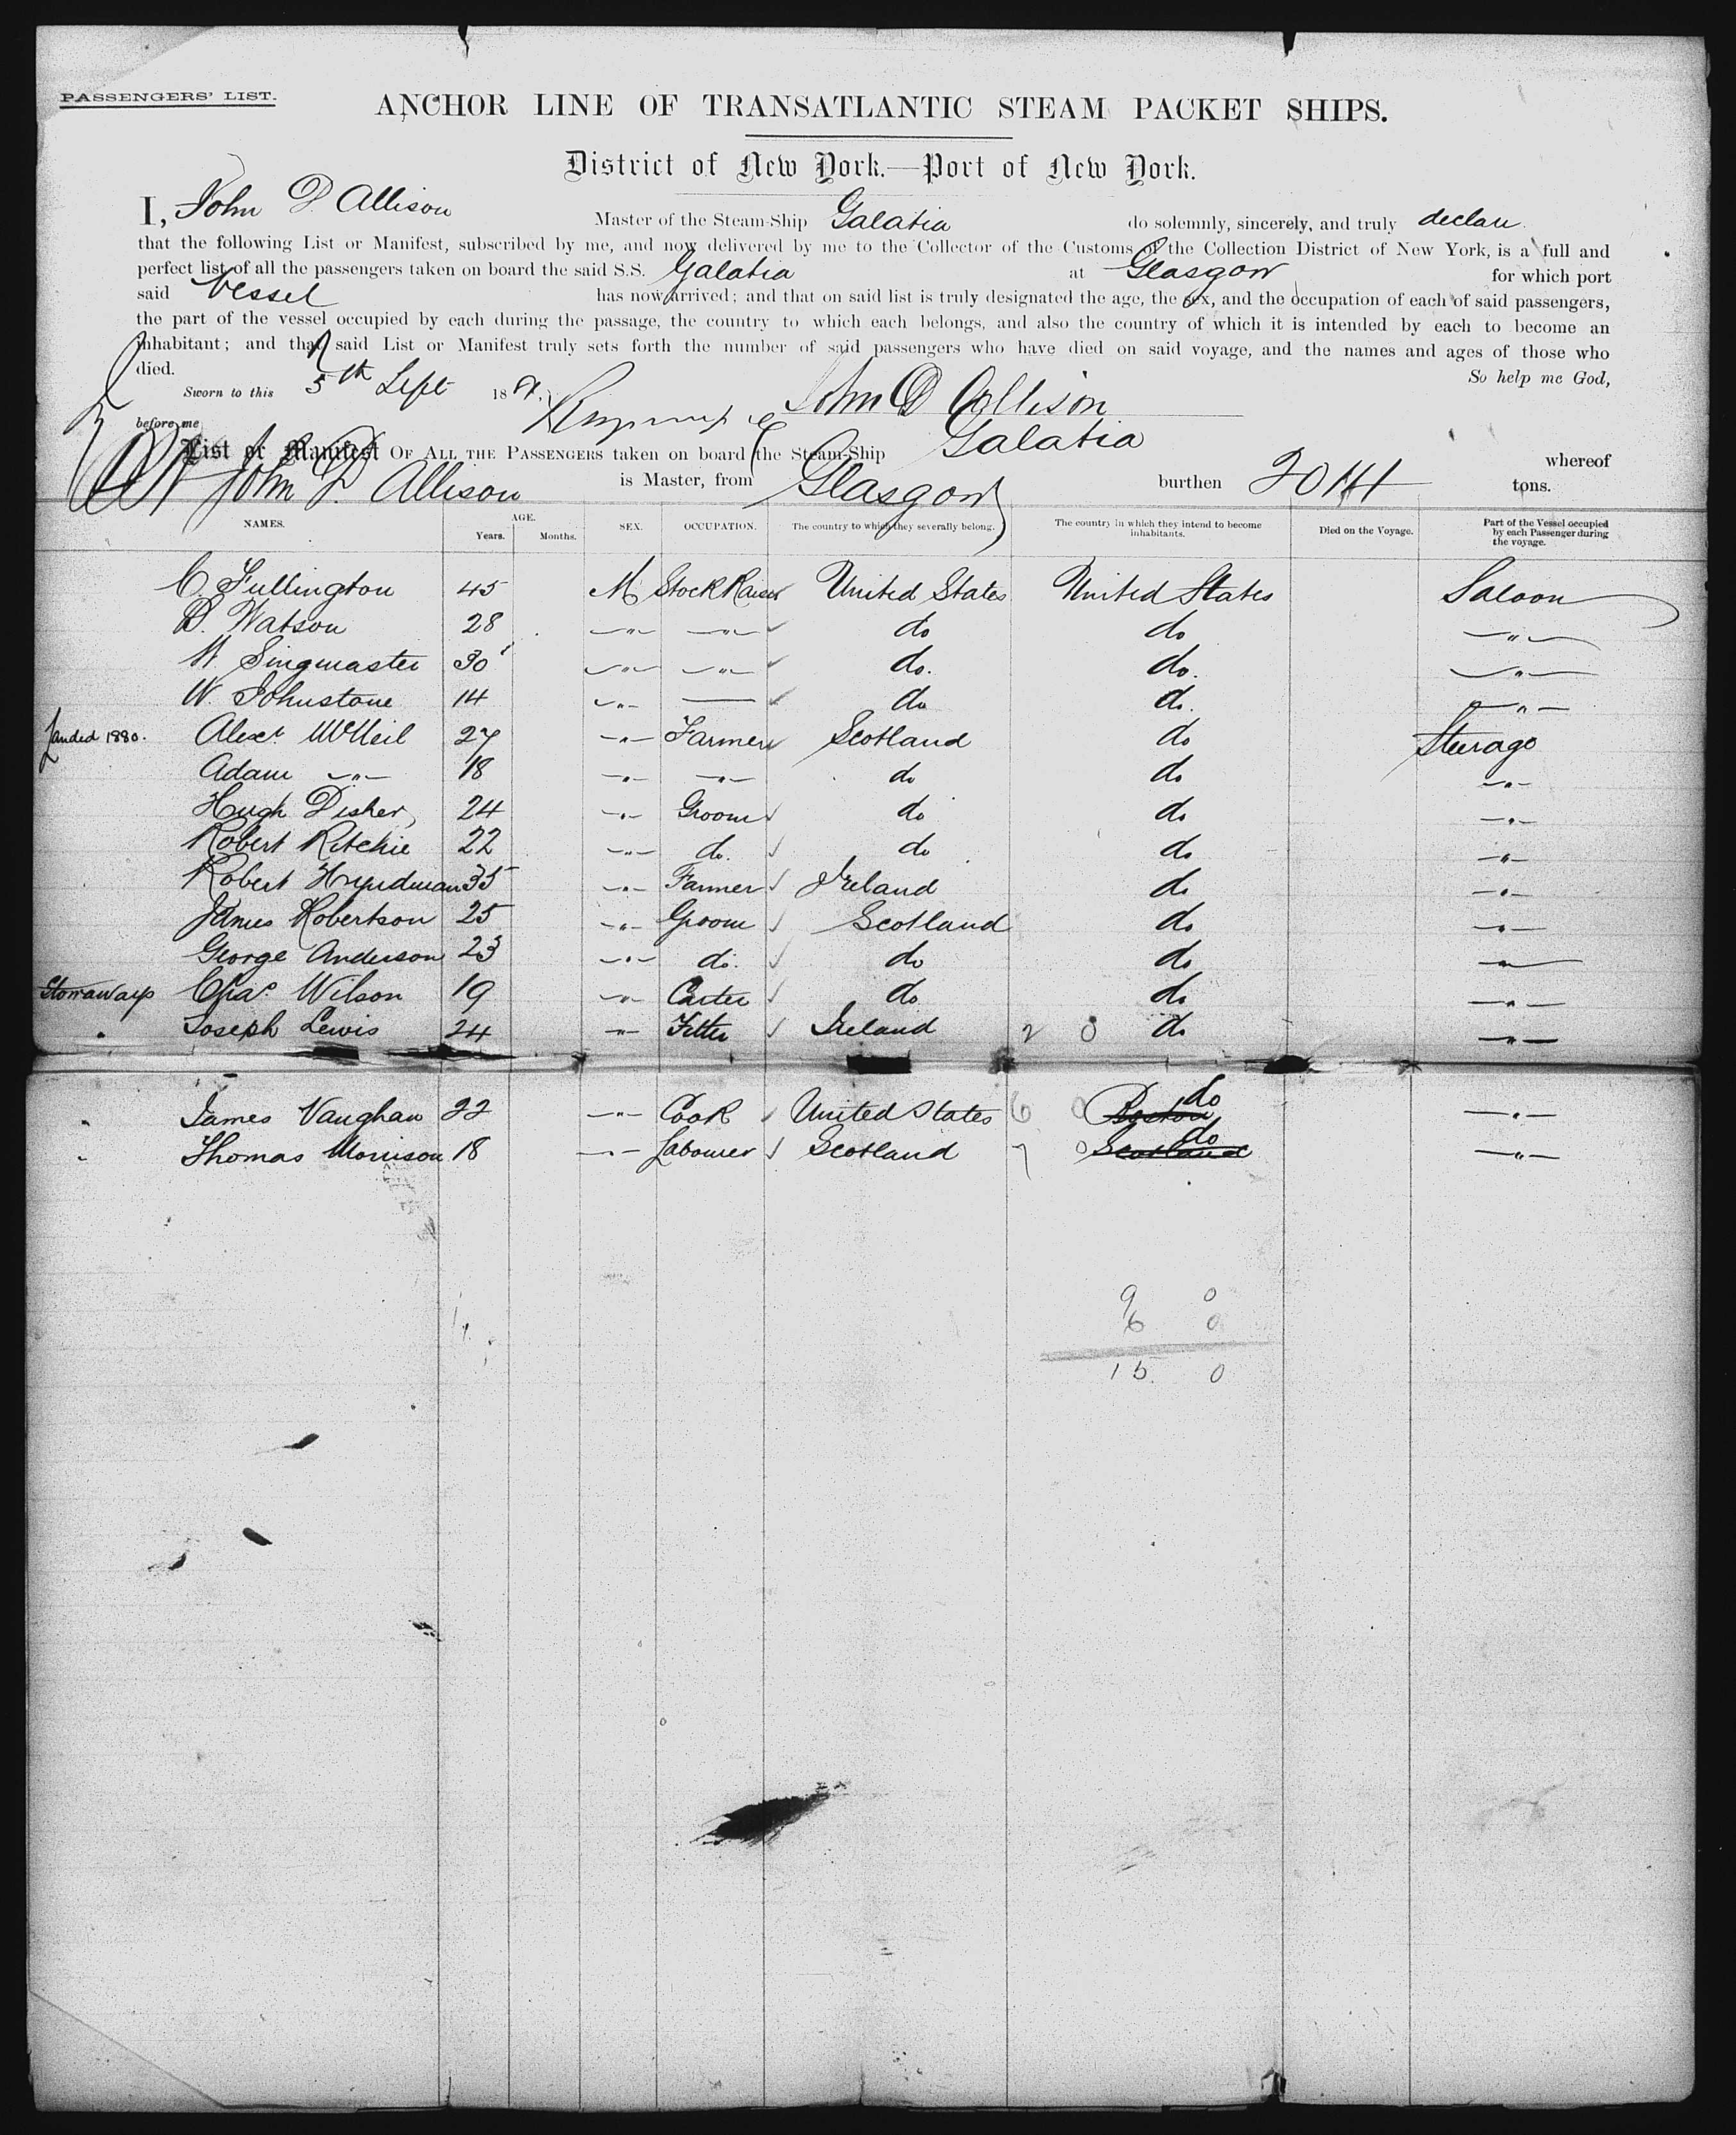 PASSENGERS' LIST.
ANCHOR LINE OF TRANSATLANTIC STEAM PACKET SHIPS.
District of New York.—Port of New York.
I, John D. Allison Master of the Steam-Ship Galatia do solemnly, sincerely, and truly declare
that the following List or Manifest, subscribed by me, and now delivered by me to the Collector of the Customs of the Collection District of New York, is a full and
perfect list of all the passengers taken on board the said S.S. Galatia at Glasgow for which port
said Vessel has now arrived; and that on said list is truly designated the age, the sex, and the occupation of each of said passengers,
the part of the vessel occupied by each during the passage, the country to which each belongs, and also the country of which it is intended by each to become an
inhabitant; and that said List or Manifest truly sets forth the number of said passengers who have died on said voyage, and the names and ages of those who
died. So help me God,
Sworn to this 5th Sept 188 John D Allison
before me
List or Manifest OF ALL THE PASSENGERS taken on board the Steam-Ship Galatia whereof
John D. Allison is Master, from Glasgow burthen tons.
NAMES. AGE. Years. Months. SEX. OCCUPATION. The country to which they severally belong. The country in which they intend to become inhabitants. Died on the Voyage. Part of the Vessel occupied by each Passenger during the voyage.
C. Fullington 45 M Stock Raiser United States United States Saloon
B. Watson 28 " " do do "
W. Singmaster 30 " " do. do. "
W. Johnstone 14 " — do do. "
Landed 1880. Alexr. McNeil 27 " Farmer Scotland do Steerage
Adam " 18 " " do do "
Hugh Disher 24 " Groom do do "
Robert Ritchie 22 " do. do do "
Robert Hyndman 35 " Farmer Ireland do "
James Robertson 25 " Groom Scotland do "
George Anderson 23 " do. do do "
Stowaways Chas. Wilson 19 " Carter do do "
" Joseph Lewis 24 " Fitter Ireland 2 0 do "
" James Vaughan 22 " Cook United States 6 0 Boston do "
" Thomas Morrison 18 " Labourer Scotland 7 0 Scotland do "
9 0
6 0
15. 0